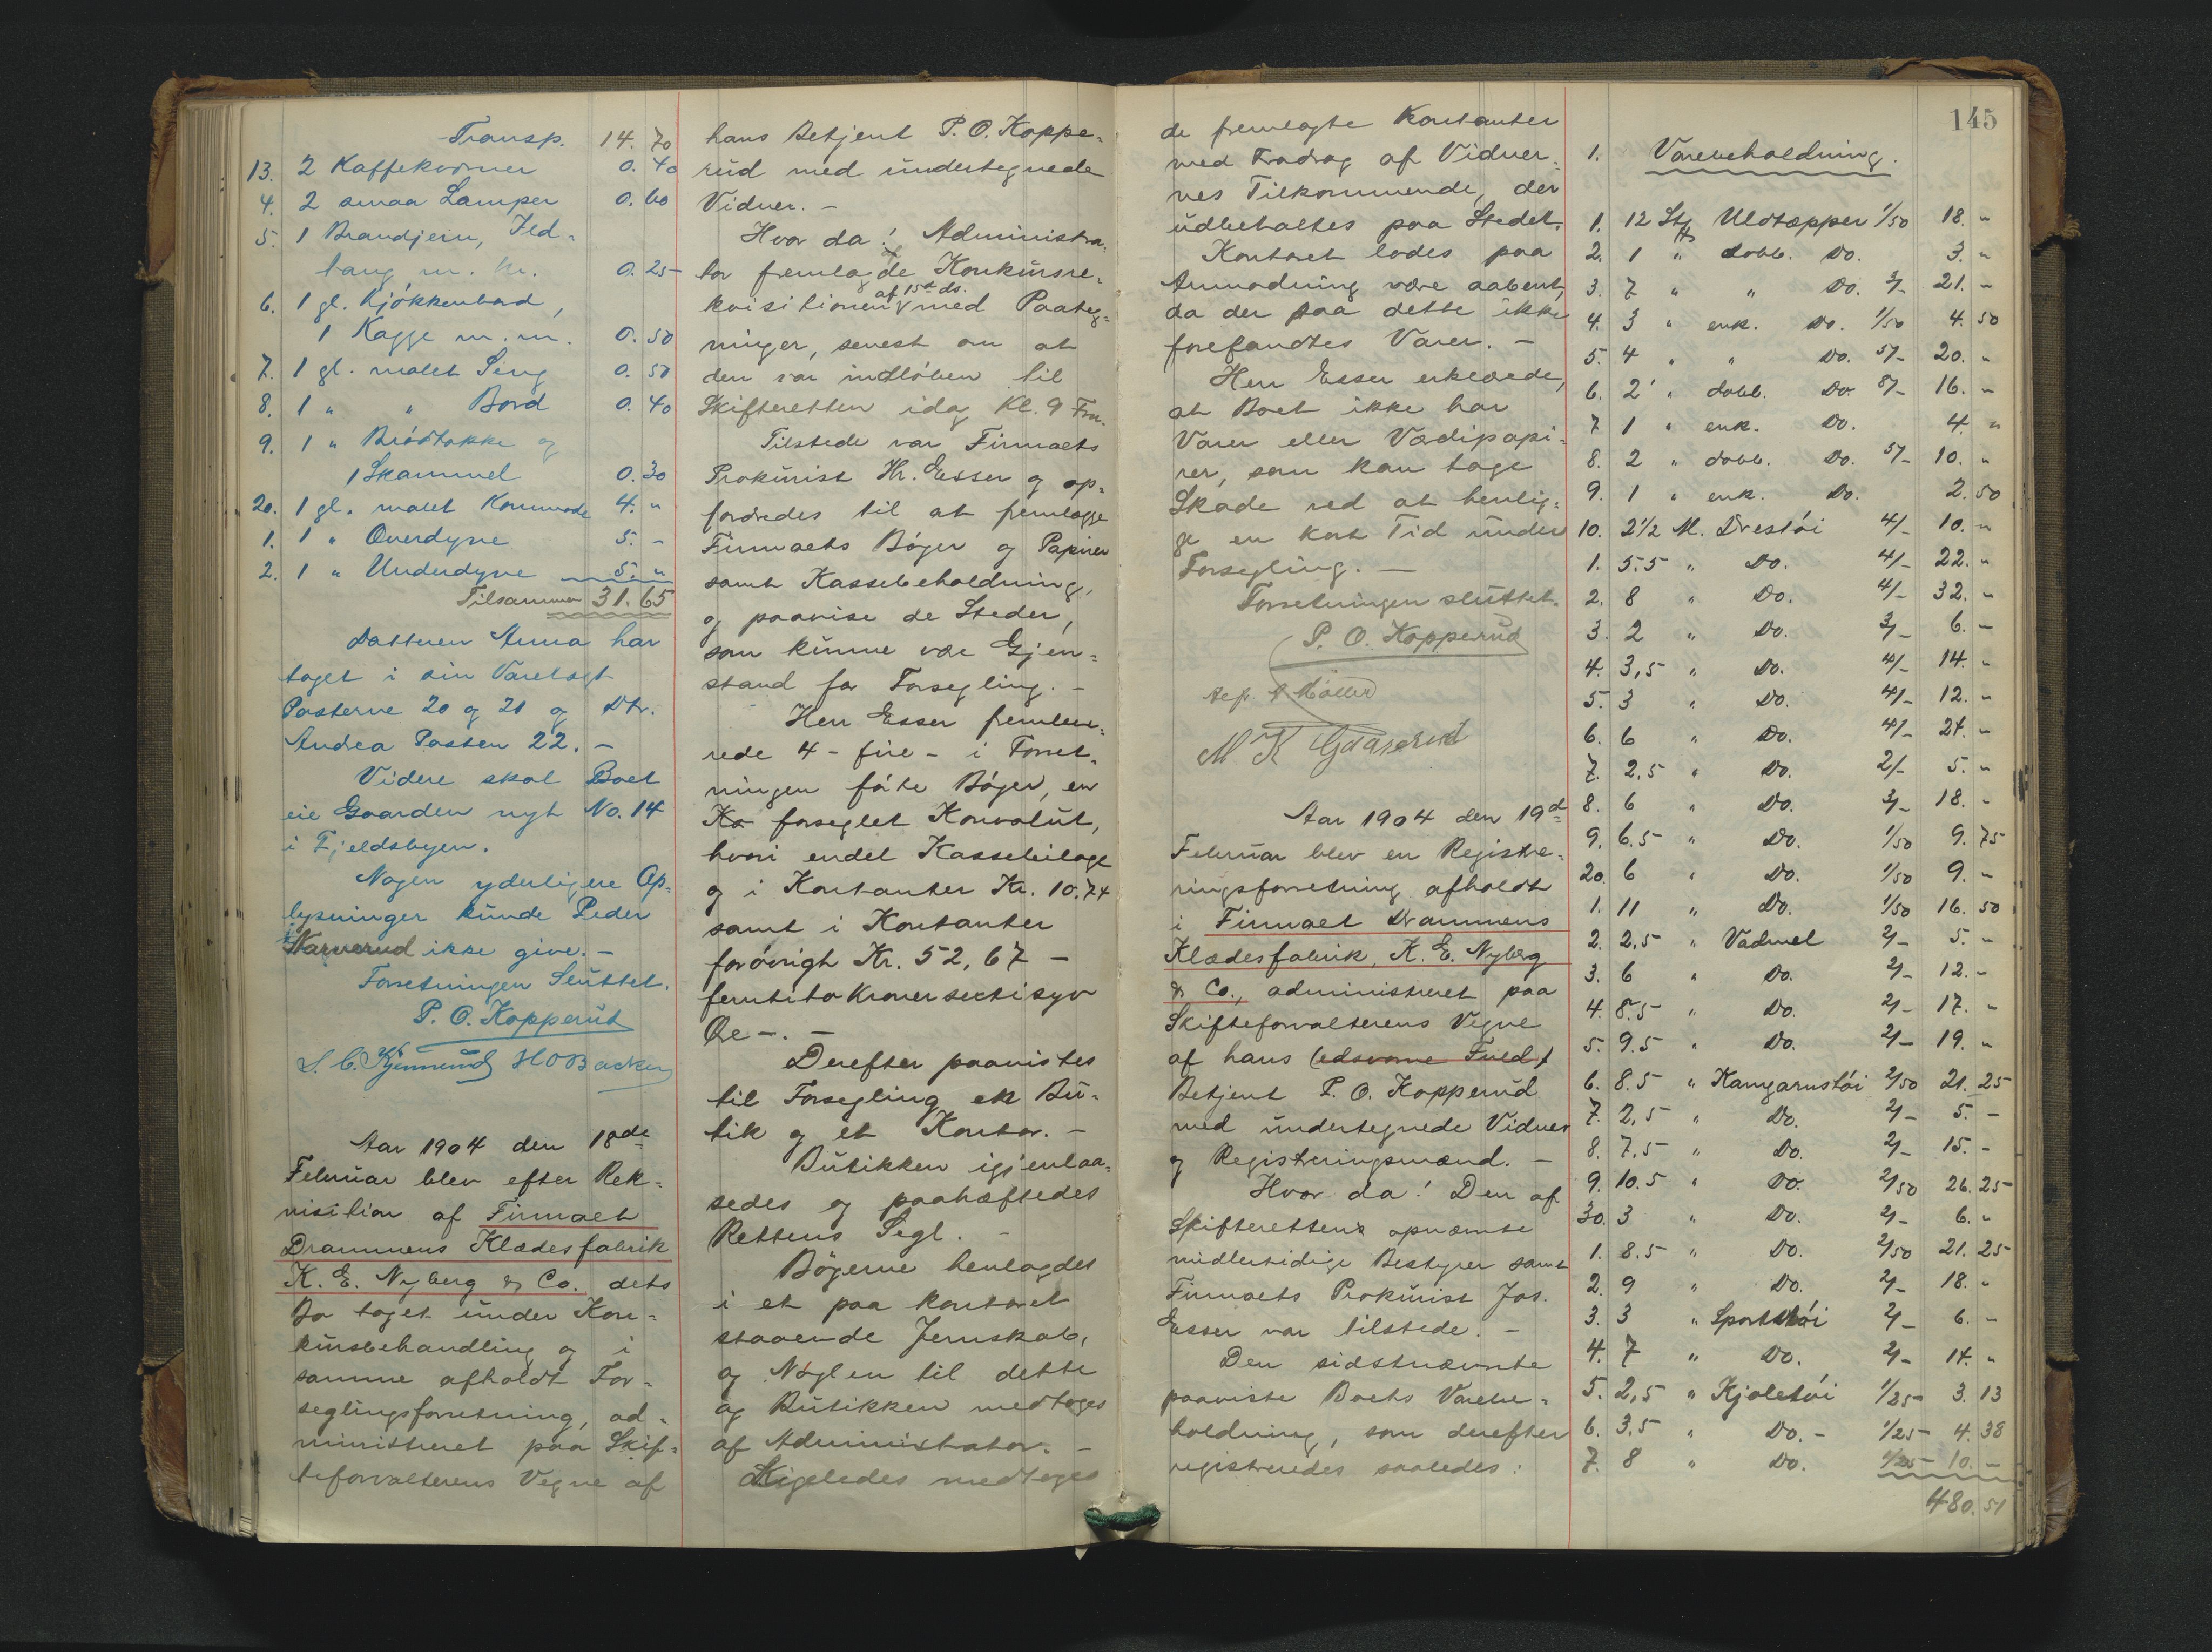 Transp. 14. 70
13. 2 Kaffekværner 0. 40
4. 2 smaa Lamper 0. 60
5. 1 Brandjern, Ild-
tang m. m. 0. 25
6. 1 gl. Kjøkkenbord,
1 Kagge m. m. 0. 50
7. 1 gl. malet Seng 0. 50
8. 1 " " Bord 0. 40
9. 1 " Brødbakke og
1 Skammel 0. 30
20. 1 gl. malet Kommode 4. "
1. 1 " Overdyne 5. -
2. 1 " Underdyne 5. "
Tilsammen 31. 65
Datteren Anna har
taget i sin Varetægt
Posterne 20 og 21 og Dtr.
Andrea Posten 22. -
Videre skal Boet
eie Gaarden nyt No. 14
i Fjeldsbyen.
Nogen yderligere Op-
lysninger kunde Peder
Narverud ikke give. -
Forretningen Sluttet.
P. O. Kopperud
H O Backer
Aar 1904 den 18de
Februar blev efter Rek-
visition af Firmaet
Drammens Klædesfabrik
K. E. Nyberg & Co. dets
Bo taget under Kon-
kursbehandling og i
samme afholdt For-
seglingsforretning, ad-
ministreret paa Skif-
teforvalterens Vegne af
hans Betjent P. O. Koppe-
rud med undertegnede
Vidner. -
Hvor da! Administra-
tor fremlagde Konkursre-
kvisitionen af 15de ds. med Paateg-
ninger, senest om at
den var indløben til
Skifteretten idag Kl. 9 Fm.
Tilstede var Firmaets
Prokurist Hr. Esser og op-
fordredes til at fremlægge
Firmaets Bøger og Papirer
samt Kassebeholdning,
og paavise de Steder,
som kunne være Gjen-
stand for Forsegling. -
Herr Esser fremleve-
rede 4 - fire - i Forret-
ningen førte Bøger, en
Ko forseglet Konvolut,
hvori endel Kassebilage
og i Kontanter Kr. 10.74
samt i Kontanter
forøvrigt Kr. 52,67 -
femtito Kroner sextisyv
Øre -. -
Derefter paavistes
til Forsegling en Bu-
tik og et Kontor. -
Butikken igjenlaa-
sedes og paahæftedes
Rettens Segl. -
Bøgerne henlagdes
i et paa Kontoret
staaende Jernskab,
og Nøglen til dette
og Butikken medtoges
af Administrator. -
Ligeledes medtoges
de fremlagte Kontanter
med Fradrag af Vidner-
nes Tilkommende, der
udbetaltes paa Stedet.
Kontoret lodes paa
Anmodning være aabent,
da der paa dette ikke
forefandtes Varer. -
Herr Esser erklærede,
at Boet ikke har
Varer eller Værdipapi-
rer, som kan tage
Skade ved at henlig-
ge en kort Tid under
Forsegling. -
Forretningen sluttet.
P. O. Kopperud
Møller
Aar 1904 den 19d
Februar blev en Registre-
ringsforretning afholdt
i Firmaet Drammens
Klædesfabrik, K. E. Nyberg
& Co., administreret paa
Skifteforvalterens Vegne
af hans (edsvorne Fuld)
Betjent P. O. Kopperud
med undertegnede Vidner
og Registreringsmænd. -
Hvor da! Den af
Skifteretten opnævnte
midlertidige Bestyrer samt
Firmaets Prokurist Jos.
Esser var tilstede. -
Den sidstnævnte
paaviste Boets Varebe-
holdning, som derefter
registreredes saaledes:
145
1. Varebeholdning.
1. 12 Stk Uldtæpper 1/50 18. "
2. 1 " dobb. Do. 3. "
3. 7 " " Do. 3/- 21. "
4. 3 " enk. Do. 1/50 4. 50
5. 4 " " Do. 5/- 20. "
6. 2 " dobb. Do. 8/- 16. "
7 1 " enk. Do. 4. "
8. 2 " dobb. Do. 5/- 10. "
9. 1 " enk. Do. 2. 50
10. 2 1/2 M. Drestøi 4/- 10. "
1. 5.5 " Do. 4/- 22. "
2. 8 " Do. 4/- 32. "
3. 2 " Do. 3/- 6. -
4. 3,5 " Do. 4/- 14. "
5. 3 " Do. 4/- 12. "
6. 6 " Do. 4/- 24. "
7. 2,5 " Do. 2/- 5. "
8. 6 " Do. 3/- 18. "
9. 6.5 " Do. 1/50 9. 75
20. 6 " Do. 1/50 9. "
1. 11 " Do. 1/50 16. 50
2. 2,5 " Vadmel 2/- 5. -
3. 6 " Do. 2/- 12. -
4. 8.5 " Do. 2/- 17. "
5. 9.5 " Do. 2/- 19. "
6. 8.5 " Kamgarnstøi 2/50 21. 25
7. 2,5 " Do. 2/- 5. -
8. 7.5 " Do. 2/- 15. -
9. 10.5 " Do. 2/50 26. 25
30. 3 " Do. 2/- 6. "
1. 8.5 " Do. 2/50 21. 25
2. 9 " Do. 2/- 18. "
3. 3 " Sportstøi 2/- 6. -
4. 7 " Do. 2/- 14. "
5. 2,5 " Kjoletøi 1/25 3. 13
6. 3.5 " Do. - 1/25 4. 38
7. 8 " Do. 1/25 10. -
480. 51